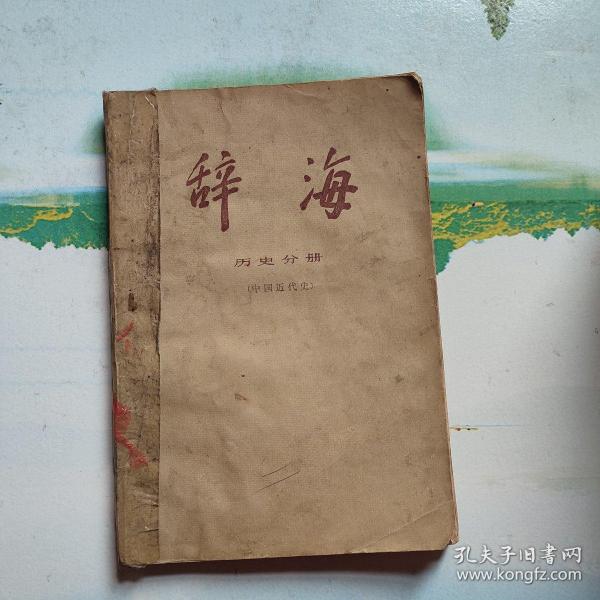 辞海
历史分册
(中国近代史)
孔夫子旧書网
www.kongfz.com